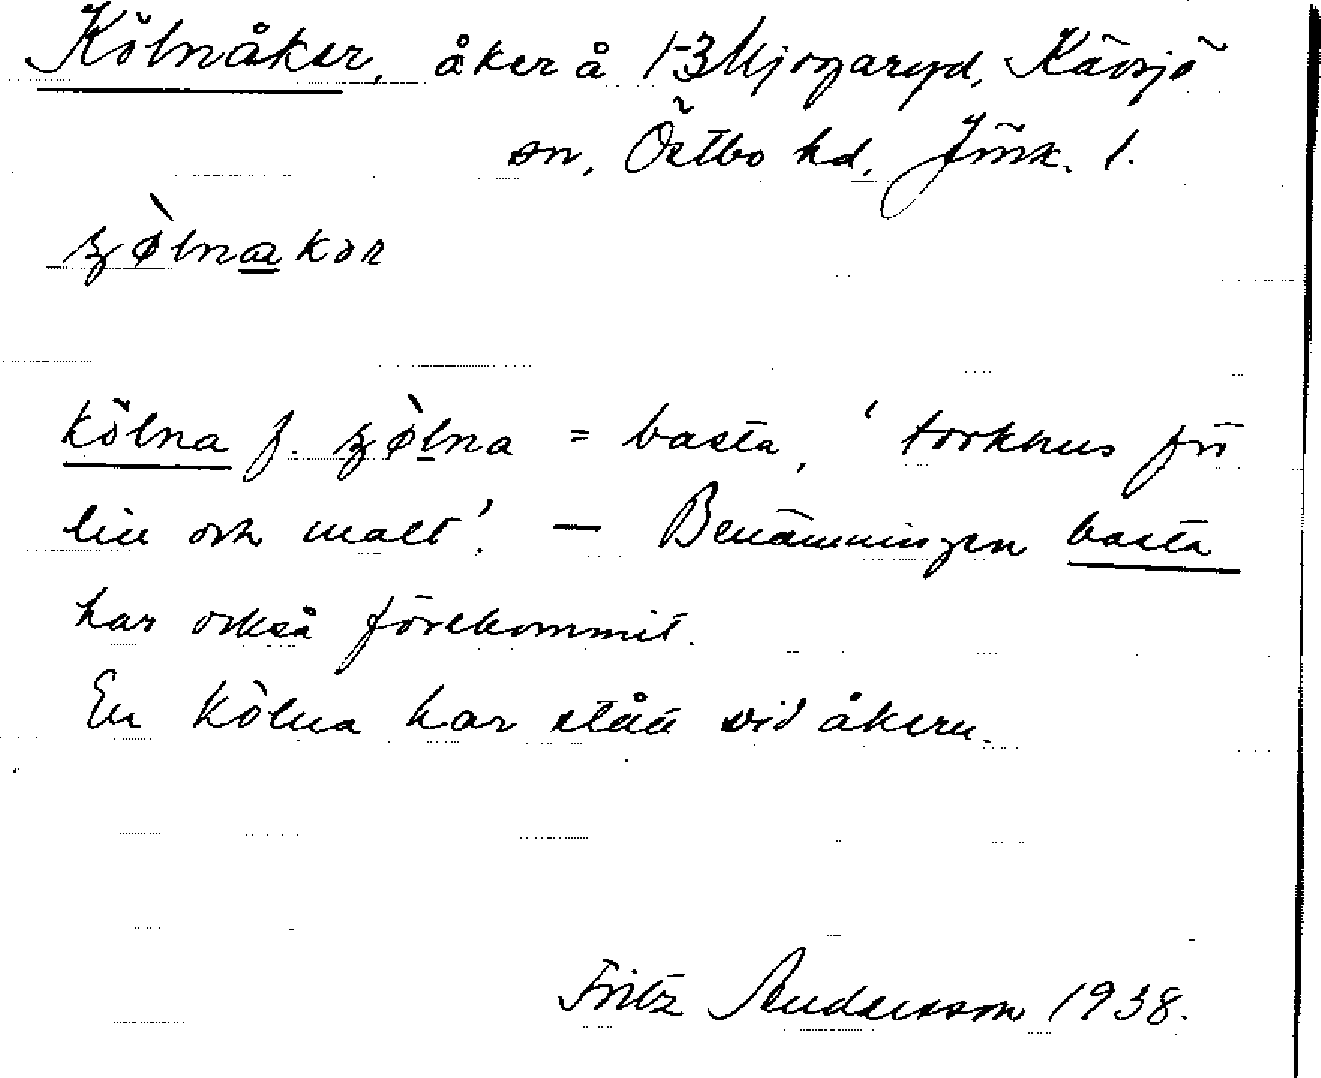 Kölnåker, åker å 1-3 Mjogaryd, Kävsjö
sn, Östbo hd, Jönk. l.
kölna f. = basta, 'torkhus för
lin och malt'. — Benämningen basta
har också förekommit.
En kölna har stått vid åkern.
Fritz Andersson 1938.